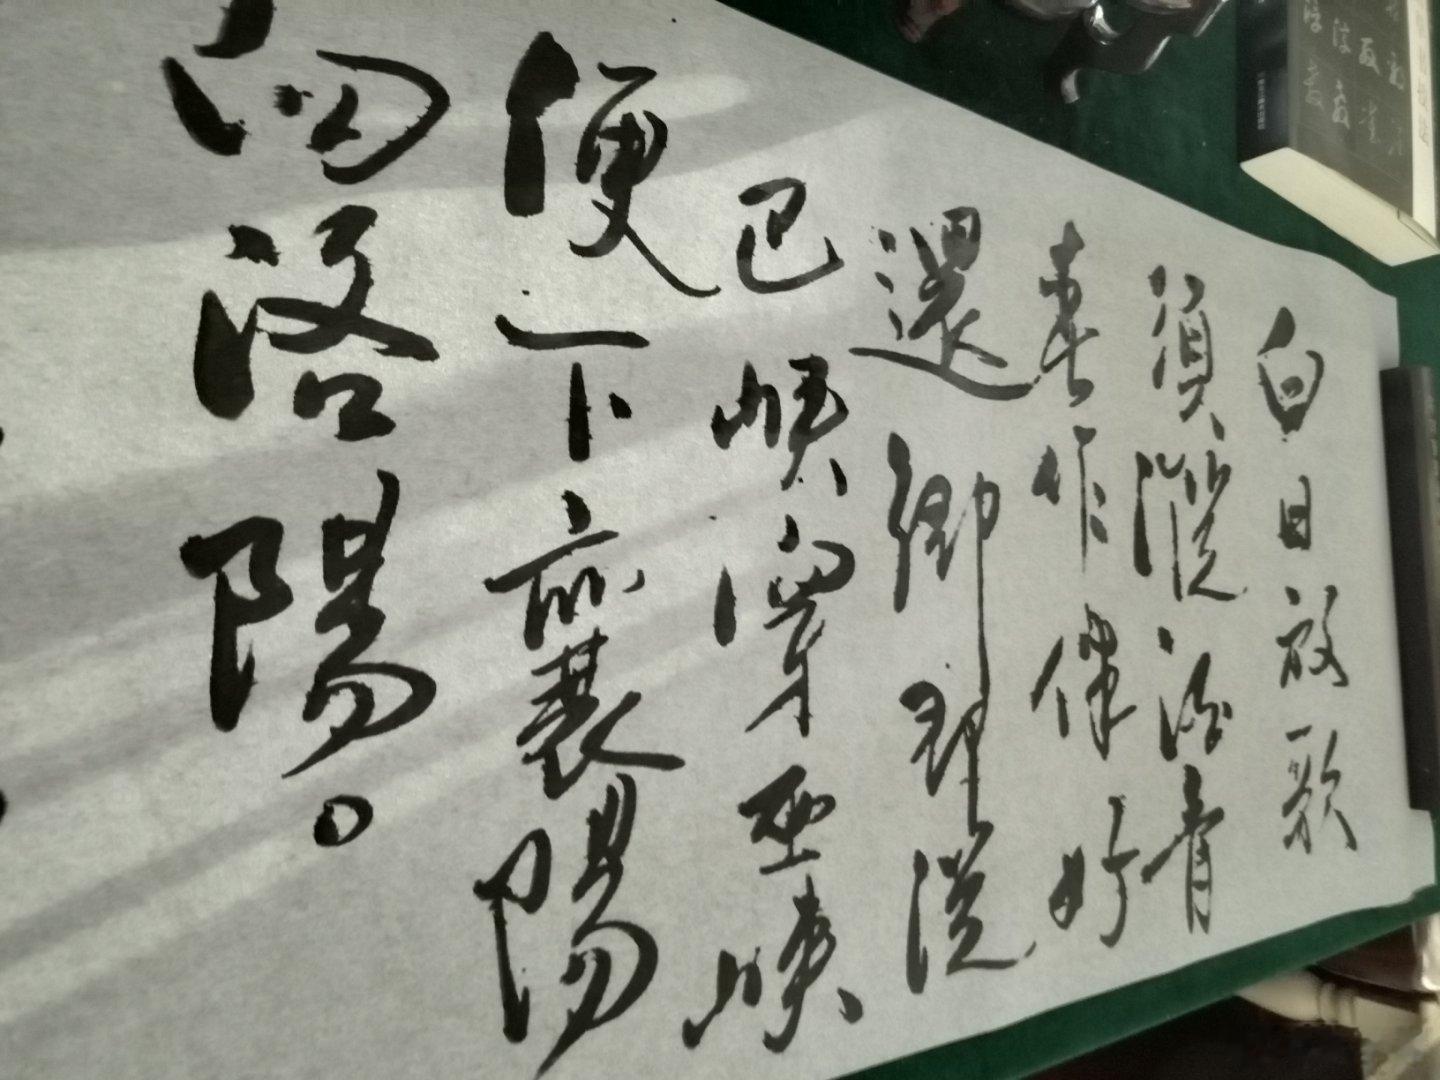 白日放歌
須縱酒青
春作伴好
還鄉即從
巴峽穿巫峽
便下襄陽
向洛陽。